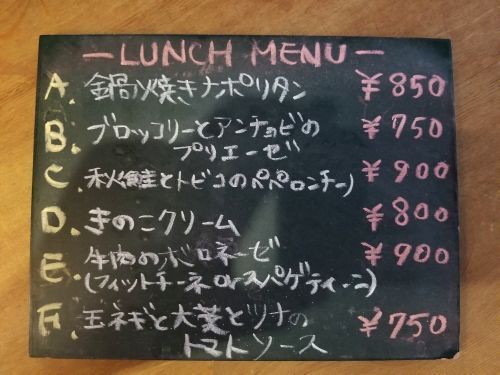 ーLUNCH MENUー
A. 鍋焼きナポリタン ¥850
B. ブロッコリーとアンチョビの ¥750
プリエーゼ
C. 秋鮭とトビコのペペロンチーノ ¥900
D. きのこクリーム ¥800
E. 牛肉のボロネーゼ ¥900
(フィットチーネorスパゲティーニ)
F. 玉ネギと大葉とツナの ¥750
トマトソース